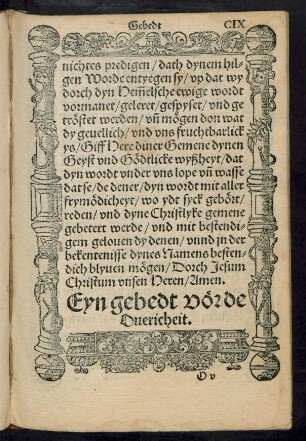 Gebedt CIX
nichtes predigen / dath dynem hil-
gen Worde entyegen sy / vp dat wy
dorch dyn Hemelsche ewige wordt
vormanet / geleret / gespyset / vnd ge
tröstet werden / vñ mögen don wat
dy geuellich / vnd vns fruchtbarlick
ys / Giff Here diner Gemene dynen
Geyst vnd Gödtlicke wyßheyt / dat
dyn wordt vnder vns lope vñ wasse
dat se / de dener / dyn wordt mit aller
frymödicheyt / wo ydt syck gehört /
reden / vnd dyne Christlyke gemene
gebetert werde / vnd mit bestendi-
gem gelouen dy denen / vnnd in der
bekentenisse dynes Namens besten-
dich blyuen mögen / Dorch Jesum
Christum vnsen Heren / Amen.
Eyn gebedt vör de
Ouericheit.
O v